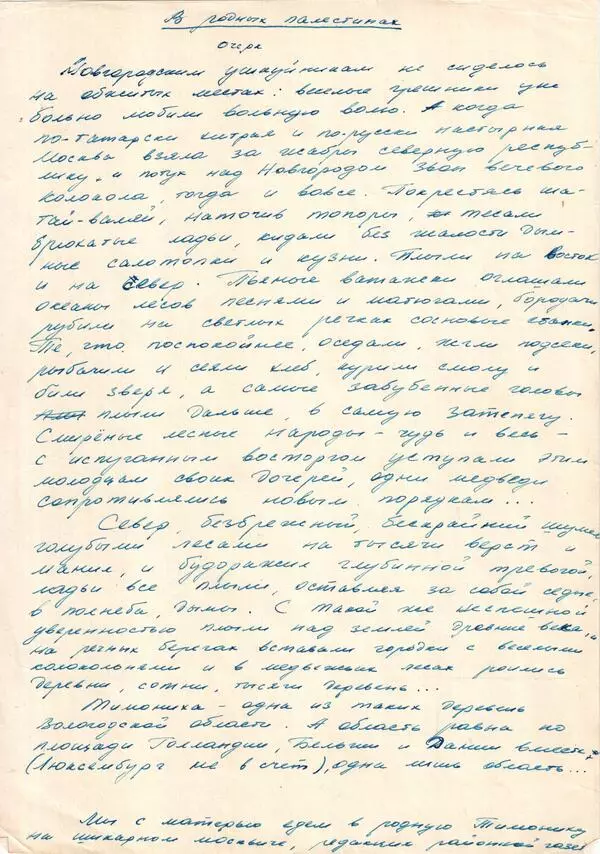 В родных палестинах
Очерк
Новгородским ушкуйникам не сиделось
на обжитых местах: веселые грешники уж
больно любили вольную волю. А когда
по-татарски хитрая и по-русски настырная
Москва взяла за жабры северную респуб-
лику, и потух над Новгородом звон вечевого
колокола, тогда и вовсе. Покрестясь ша-
тай-валяй, наточив топоры, тесали
брюхатые ладьи, кидали без жалости дым-
ные салотопки и кузни. Плыли на восток
и на север. Пьяные ватажки оглашали
океаны лесов песнями и матюгами, бородачи
рубили на светлых речках сосновые
Те, что поспокойнее, оседали, жгли подсеки,
рыбачили и сеяли хлеб, курили смолу и
били зверя, а самые забубенные головы
плыли дальше, в самую
Смирёные лесные народы - чудь и весь -
с испуганным восторгом уступали этим
молодцам своих дочерей, одни медведи
сопротивлялись новым порядкам...
Север, безбрежный, бескрайний шумел
голубыми лесами на тысячи верст и
манил, и будоражил глубинной тревогой,
ладьи все плыли, оставляя за собой седые,
в полнеба, дымы. С такой же неспешной
уверенностью плыли над землей древние века, и
на речных берегах вставали городки с веселыми
колокольнями и в медвежьих лесах роились
деревни, сотни, тысячи деревень...
Тимониха - одна из таких деревень
Вологодской области. А область равна по
площади Голландии, Бельгии и Дании вместе
(Люксембург не в счет), одна лишь область...
Мы с матерью едем в родную Тимониху
на шикарном москвиче, редакция районной газе